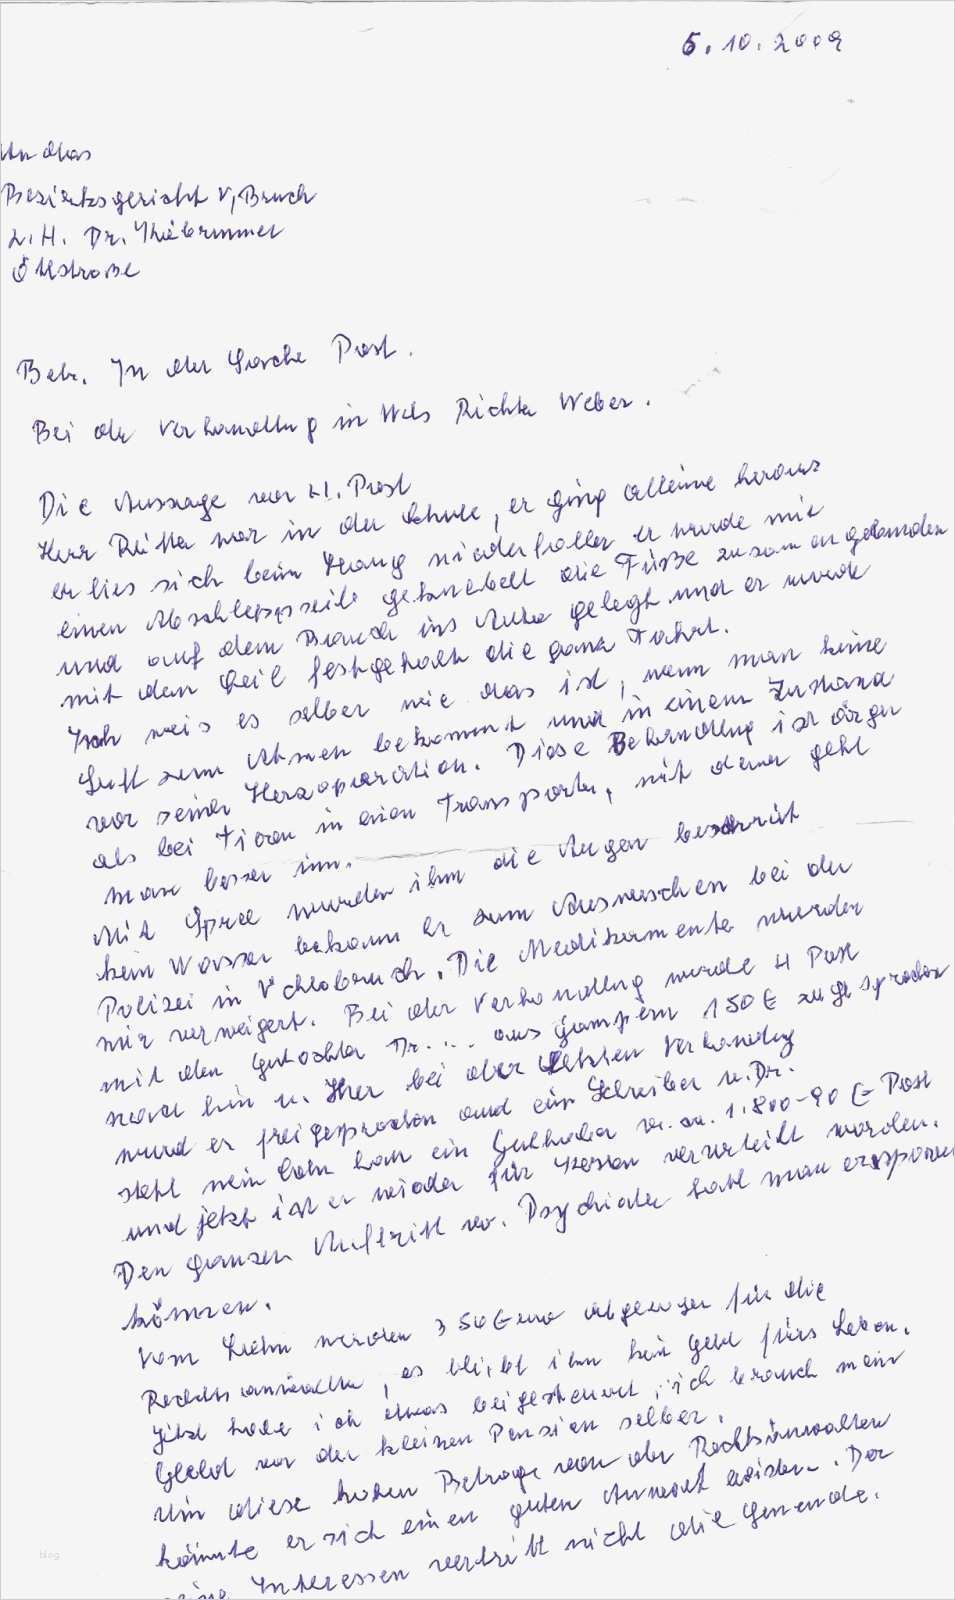 5.10.2009
An das
Bezirksgericht V, Bruck
z.H. Dr.
Betr. In der Sache Post.
Bei der Verhandlung in Wels Richter Weber.
Die Aussage von H. Post
Herr Ritter war in der Schule, er ging alleine heraus
er lies sich beim Hang niederfallen er wurde mit
einen Abschleppseile geknebelt die Füße zusammengebunden
und auf dem Bauch ins Auto gelegt und er wurde
mit den Seil festgehalten die ganz Fahrt.
Ich weis es selber wie das ist, wenn man keine
Luft zum Atmen bekommt und in einem Zustand
vor seiner Herzoperation. Diese Behandlung ist ärger
als bei Tieren in einen Transporter, mit denen geht
man besser um.
Mit Spree wurden ihm die Augen
kein Wasser bekam er zum Auswaschen bei der
Polizei in V. Die Medikamente wurden
mir verweigert. Bei der Verhandlung wurde H Post
mit den Gutachter Dr. ... aus 150 €
bei der letzten Verhandlg
wurd er freigesprochen und ein Schreiben v. Dr.
steht sein Sohn hat ein Guthaben v. ca. 1.800-90 € Post
und jetzt ist er wieder für verurteilt worden.
Den ganzen Auftritt vo. Psychiater hatt man ersparen
können.
Vom Lohn werden 350 Euro abgezogen für die
Rechtsanwältin, es bleibt ihm kein Geld fürs Leben.
Jetzt habe ich etwas beigesteuert, ich brauch mein
Geld von der kleinen Pension selber.
Um diese hohen Betrage von der Rechtsanwalten
könnte er sich einen guten Anwalt leisten. Der
Interessen vertritt nicht die Gemende.
blog